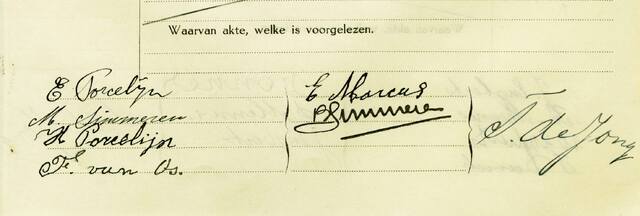 Waarvan akte, welke is voorgelezen.
E Porcelijn
M. Simmeren
H Porcelijn
F. van Os.
E Marcus
B Simmeren
F. de Jong